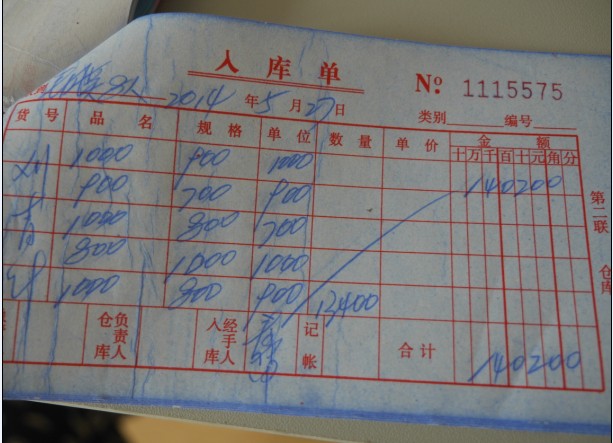 入库单
№ 1115575
2014年5月27日 类别 编号
货号 品名 规格 单位 数量 单价 金额
十万千百十元角分
1000 900 1000 140200
900 700 900
1000 800 700
800 1000 1000
1000 800 900 13400
仓库负责人 入库经手人 记帐 合计 140200
第二联 仓库